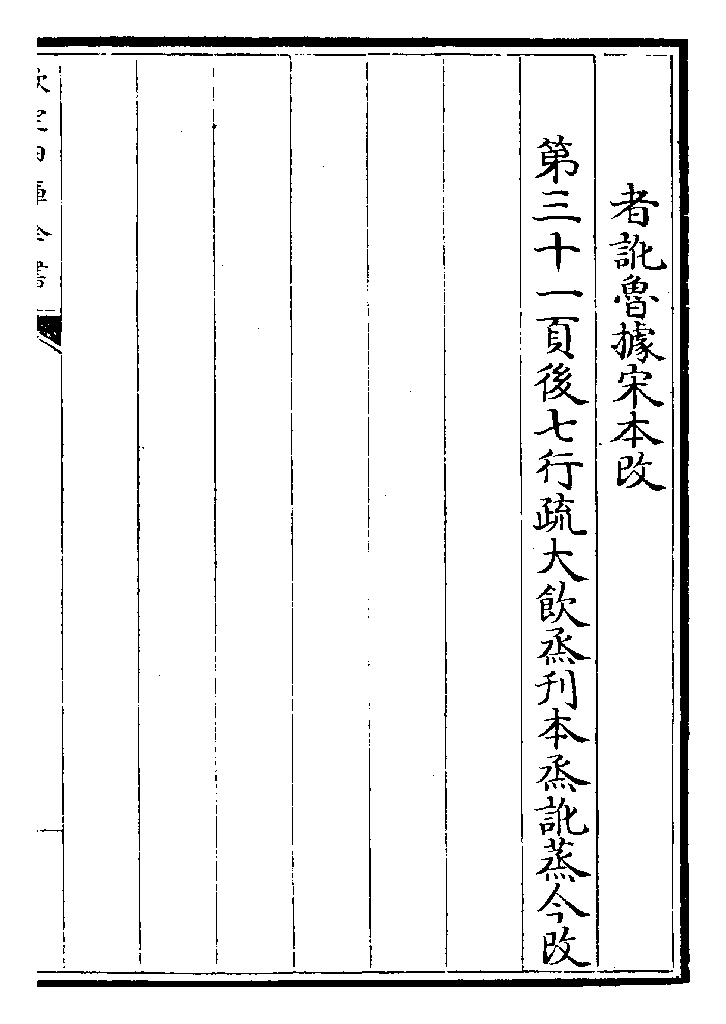 者訛魯據宋本改
第三十一頁後七行疏大飲烝刊本烝訛蒸今改
欽定四庫全書